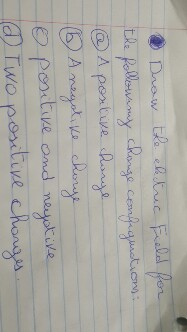 Draw the electric Field for
the following charge configurations:
(a) A positive charge
(b) A negative charge
(c) positive and negative
(d) Two positive charges.